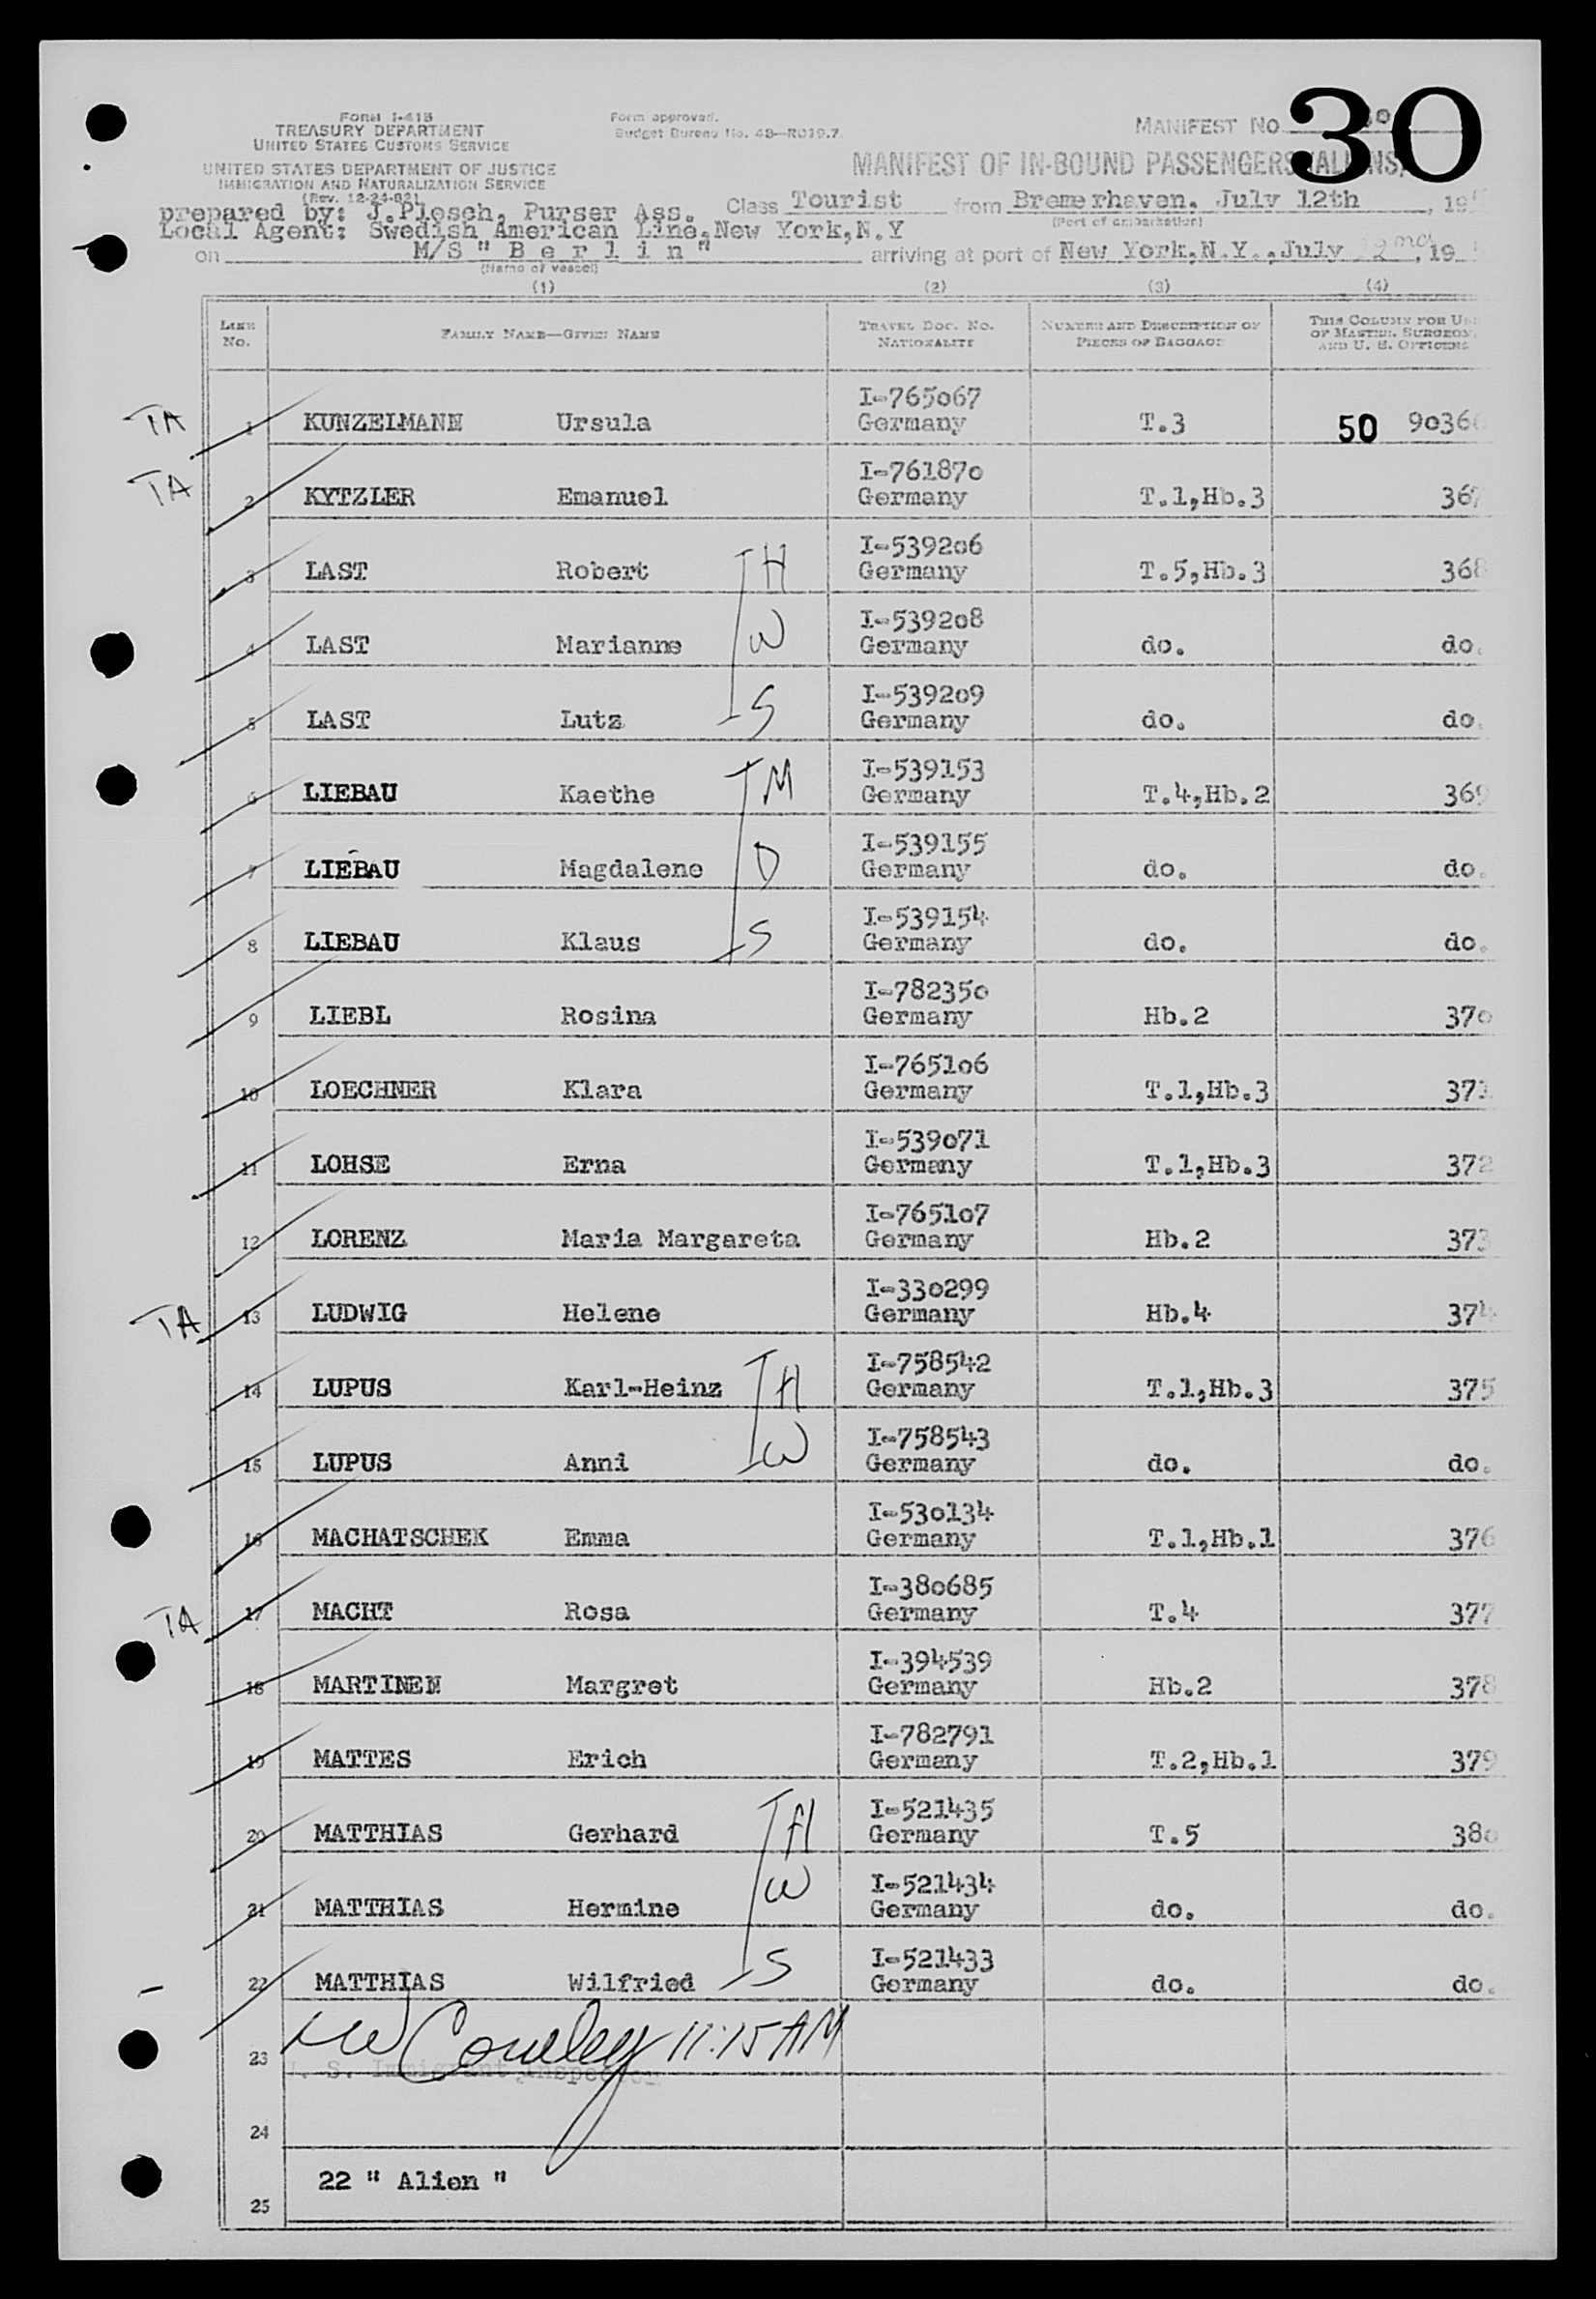 30
Form I-418
TREASURY DEPARTMENT
UNITED STATES CUSTOMS SERVICE
UNITED STATES DEPARTMENT OF JUSTICE
IMMIGRATION AND NATURALIZATION SERVICE
(Rev. 12-24-52)
Form approved.
Budget Bureau No. 43—R019.7.
MANIFEST NO
MANIFEST OF IN-BOUND PASSENGERS (ALIENS)
prepared by: J.Plosch, Purser Ass. Class Tourist from Bremerhaven. July 12th, 19
(Port of embarkation)
Local Agent: Swedish American Line,New York,N.Y
on M/S " B e r l i n " arriving at port of New York,N.Y.,July 22nd, 19
(Name of vessel)
(1) (2) (3) (4)
LINE NO. FAMILY NAME—GIVEN NAME TRAVEL DOC. NO. NATIONALITY NUMBER AND DESCRIPTION OF PIECES OF BAGGAGE THIS COLUMN FOR USE OF MASTER, SURGEON, AND U. S. OFFICERS
I-765067
TA 1 KUNZELMANN Ursula Germany T.3 50 90366
I-761870
TA 2 KYTZLER Emanuel Germany T.1,Hb.3 367
I-539206
3 LAST Robert H Germany T.5,Hb.3 368
I-539208
4 LAST Marianne W Germany do. do.
I-539209
5 LAST Lutz S Germany do. do.
I-539153
6 LIEBAU Kaethe M Germany T.4,Hb.2 369
I-539155
7 LIEBAU Magdalene D Germany do. do.
I-539154
8 LIEBAU Klaus S Germany do. do.
I-782350
9 LIEBL Rosina Germany Hb.2 370
I-765106
10 LOECHNER Klara Germany T.1,Hb.3 371
I-539071
11 LOHSE Erna Germany T.1,Hb.3 372
I-765107
12 LORENZ Maria Margareta Germany Hb.2 373
I-330299
TA 13 LUDWIG Helene Germany Hb.4 374
I-758542
14 LUPUS Karl-Heinz H Germany T.1,Hb.3 375
I-758543
15 LUPUS Anni W Germany do. do.
I-530134
16 MACHATSCHEK Emma Germany T.1,Hb.1 376
I-380685
TA 17 MACHT Rosa Germany T.4 377
I-394539
18 MARTINEN Margret Germany Hb.2 378
I-782791
19 MATTES Erich Germany T.2,Hb.1 379
I-521435
20 MATTHIAS Gerhard H Germany T.5 380
I-521434
21 MATTHIAS Hermine W Germany do. do.
I-521433
22 MATTHIAS Wilfried S Germany do. do.
Cowley 11:15 AM
23 U. S. Immigrant Inspector
24
22 " Alien "
25